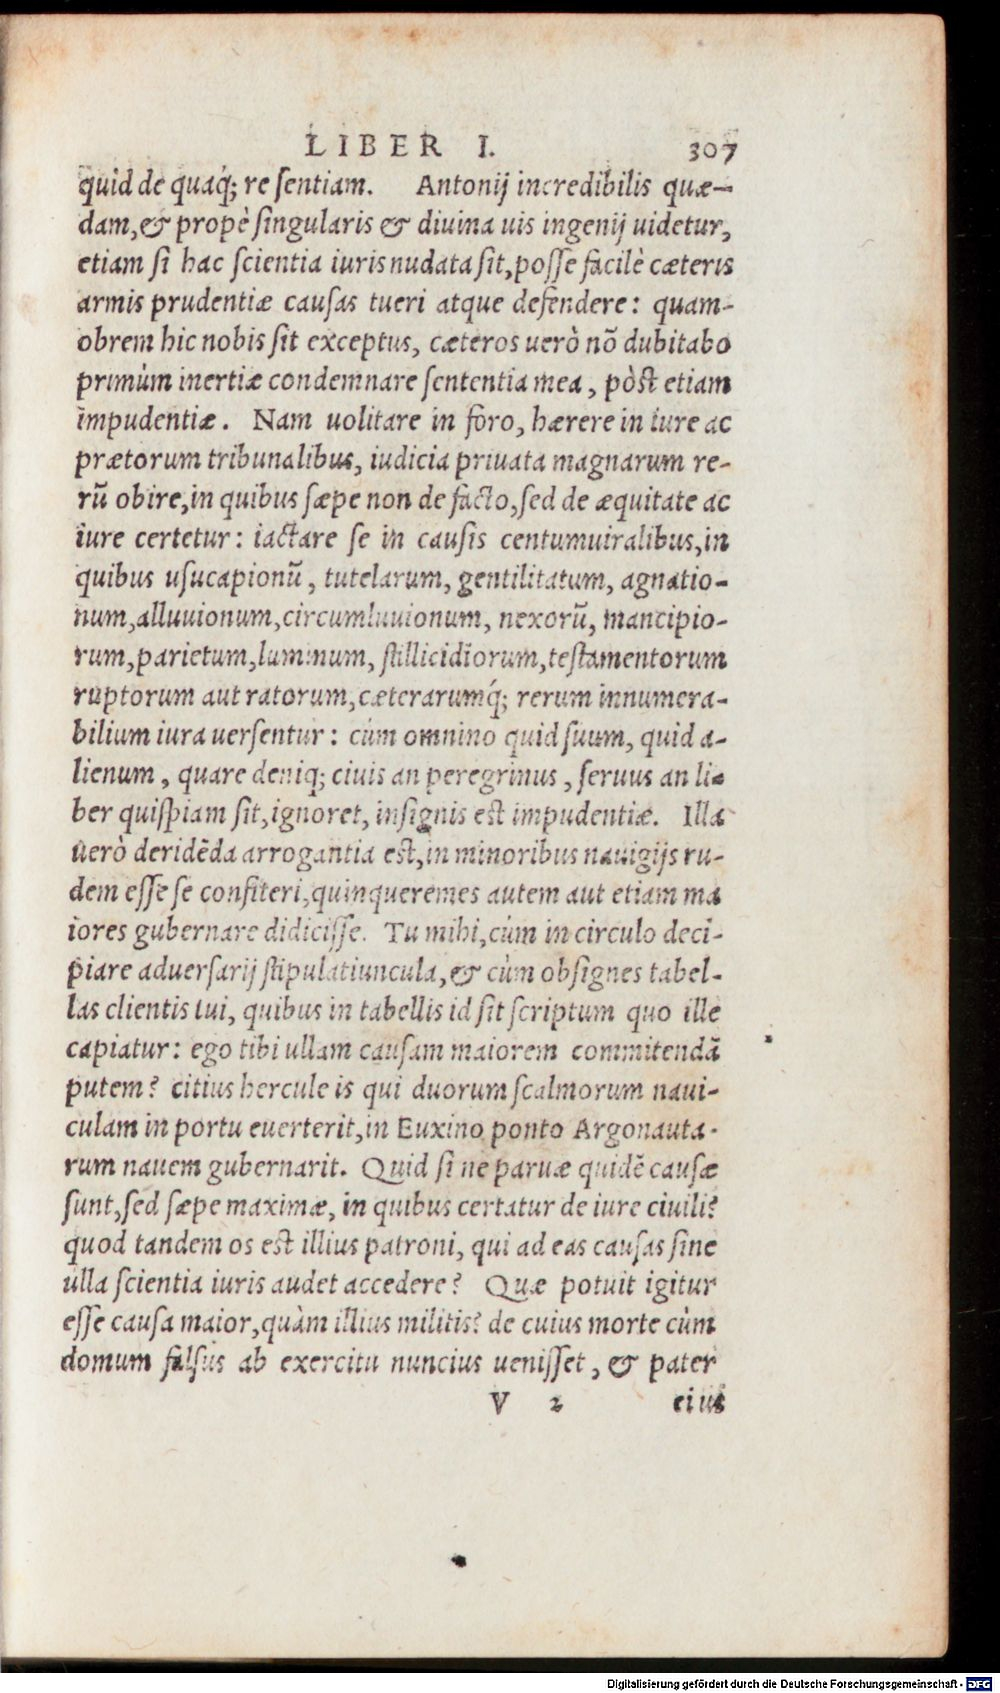 LIBER I. 307
quid de quaq́; re sentiam. Antonij incredibilis quæ-
dam, & propè singularis & diuina uis ingenij uidetur,
etiam si hac scientia iuris nudata sit, posse facilè cæteris
armis prudentiæ causas tueri atque defendere: quam-
obrem hic nobis sit exceptus, cæteros uerò nõ dubitabo
primùm inertiæ condemnare sententia mea, pòst etiam
impudentiæ. Nam uolitare in foro, hærere in iure ac
prætorum tribunalibus, iudicia priuata magnarum re-
rũ obire, in quibus sæpe non de facto, sed de æquitate ac
iure certetur: iactare se in causis centumuiralibus, in
quibus usucapionũ, tutelarum, gentilitatum, agnatio-
num, alluuionum, circumluuionum, nexorũ, mancipio-
rum, parietum, luminum, stillicidiorum, testamentorum
ruptorum aut ratorum, cæterarumq́; rerum innumera-
bilium iura uersentur: cùm omnino quid suum, quid a-
lienum, quare deniq; ciuis an peregrinus, seruus an li-
ber quispiam sit, ignoret, insignis est impudentiæ. Illa
uerò deridẽda arrogantia est, in minoribus nauigijs ru-
dem esse se confiteri, quinqueremes autem aut etiam ma
iores gubernare didicisse. Tu mihi, cùm in circulo deci-
piare aduersarij stipulatiuncula, & cùm obsignes tabel-
las clientis tui, quibus in tabellis id sit scriptum quo ille
capiatur: ego tibi ullam causam maiorem committendã
putem? citius hercule is qui duorum scalmorum naui-
culam in portu euerterit, in Euxino ponto Argonauta-
rum nauem gubernarit. Quid si ne paruæ quidẽ causæ
sunt, sed sæpe maximæ, in quibus certatur de iure ciuili?
quod tandem os est illius patroni, qui ad eas causas sine
ulla scientia iuris audet accedere? Quæ potuit igitur
esse causa maior, quàm illius militis? de cuius morte cùm
domum falsus ab exercitu nuncius uenisset, & pater
V 2 eius
Digitalisierung gefördert durch die Deutsche Forschungsgemeinschaft - DFG